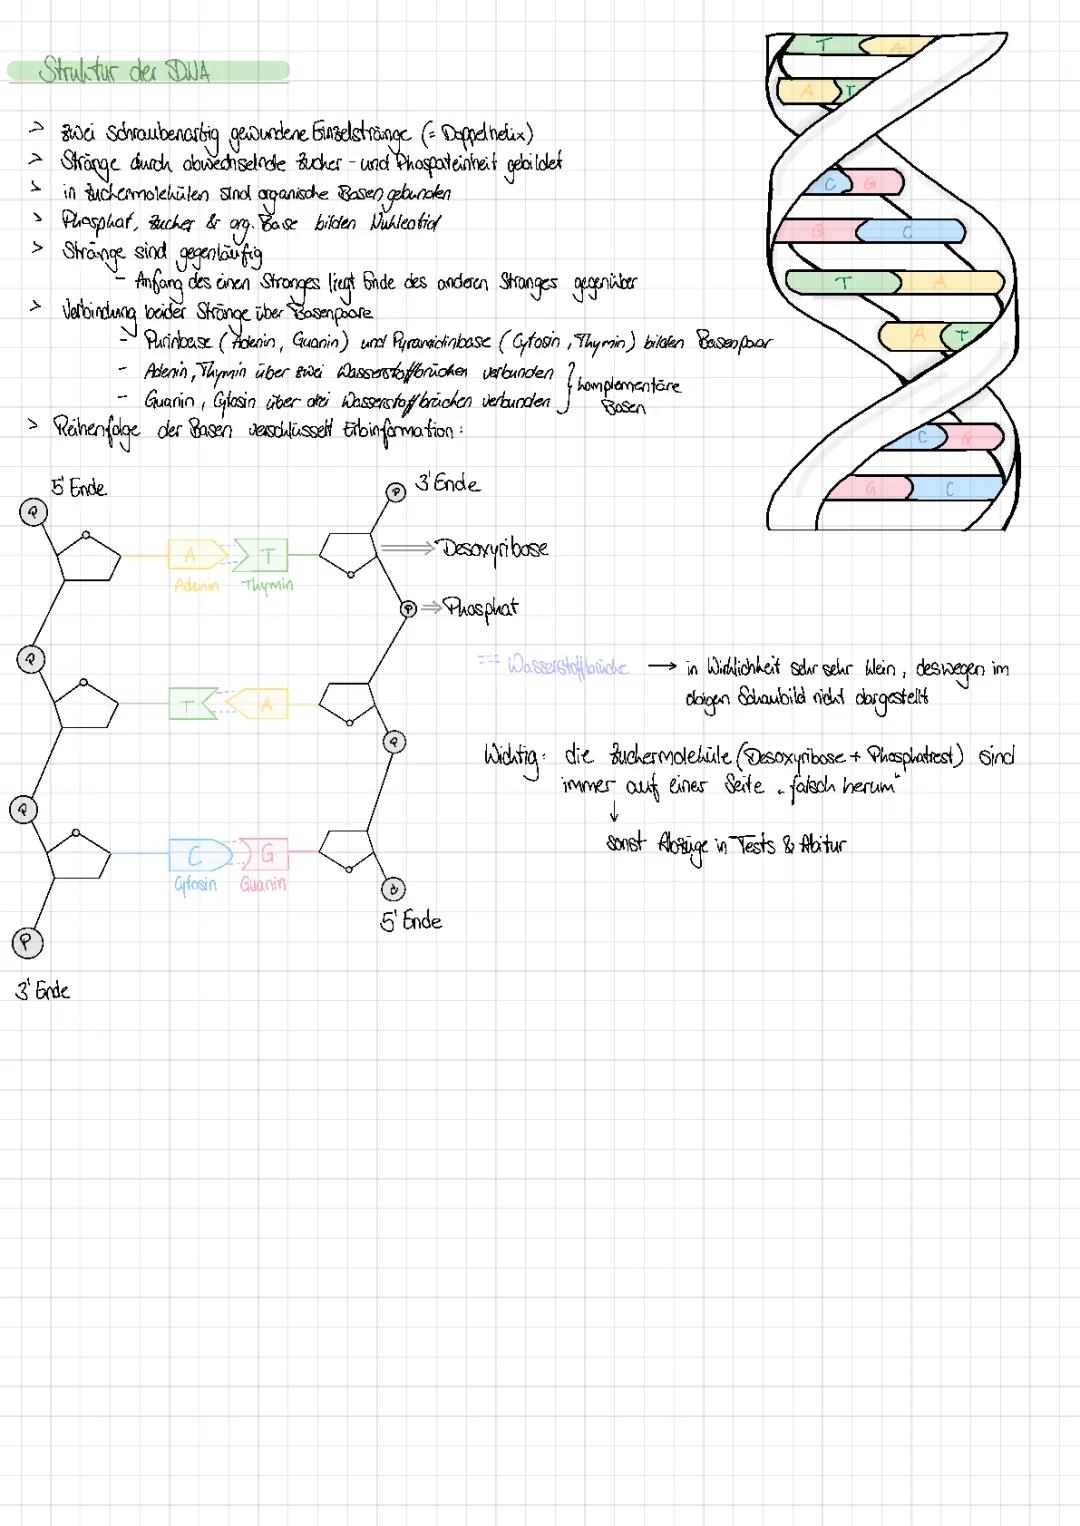 Struktur der DNA
> zwei schraubenartig gewundene Einzelstränge (= Doppelhelix)
> Stränge durch abwechselnde Zucker- und Phospateinheit gebildet
> in Zuckermolekülen sind organische Basen gebunden
> Phosphat, Zucker & org. Base bilden Nukleotid
> Stränge sind gegenläufig
- Anfang des einen Stranges liegt Ende des anderen Stranges gegenüber
> Verbindung beider Stränge über Basenpaare
- Purinbase (Adenin, Guanin) und Pyramidinbase (Cytosin, Thymin) bilden Basenpaar
- Adenin, Thymin über zwei Wasserstoffbrücken verbunden
- Guanin, Cytosin über drei Wasserstoffbrücken verbunden
} komplementäre
Basen
> Reihenfolge der Basen verschlüsselt Erbinformation:
T A
A T
C G
G C
T A
A T
C G
G C
5' Ende
3' Ende
P
P
A T
Adenin Thymin
⇒ Desoxyribose
P ⇒ Phosphat
P
=== Wasserstoffbrücke → in Wirklichkeit sehr sehr klein, deswegen im
obigen Schaubild nicht dargestellt
T A
P
Wichtig: die Zuckermoleküle (Desoxyribose + Phosphatrest) sind
immer auf einer Seite „falsch herum"
↓
sonst Abzüge in Tests & Abitur
P
C G
Cytosin Guanin
P
5' Ende
P
3' Ende